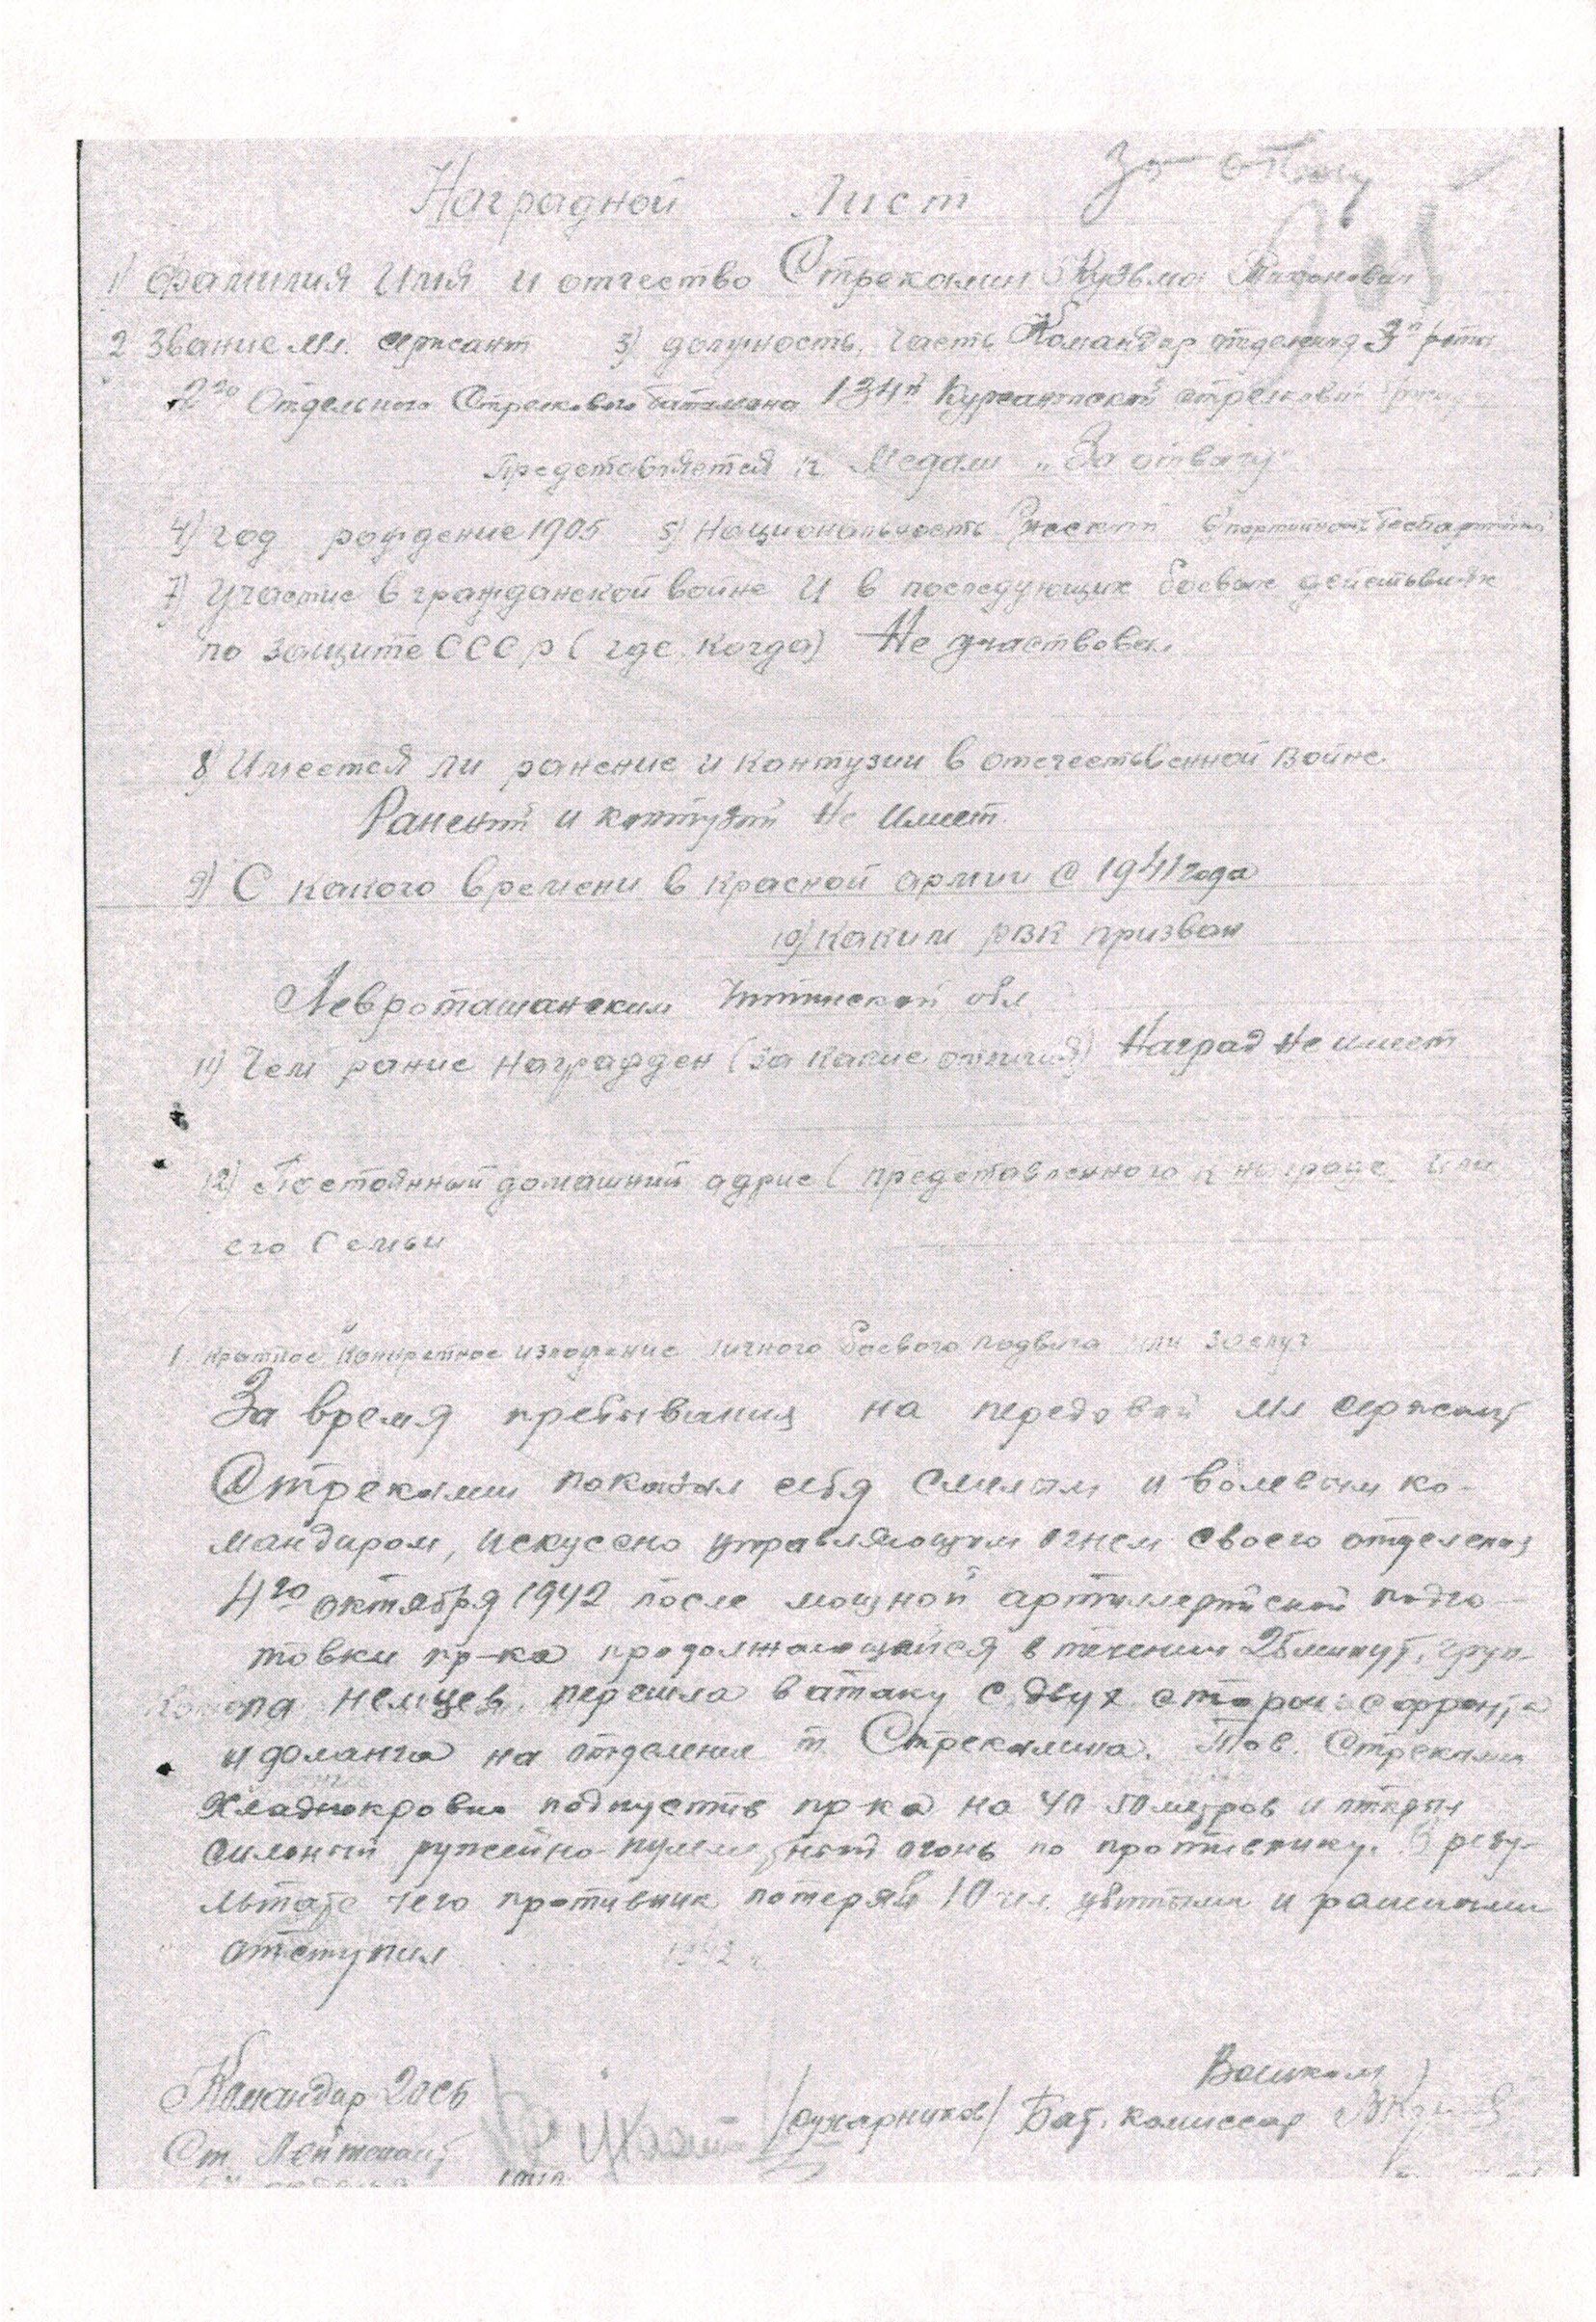 За отвагу
Наградной Лист
1) Фамилия Имя и отчество Стрекалин Кузьма
2 Звание мл. сержант 3) должность, часть Командир отделения 3й роты
2го Отдельного Стрелкового батальона 134й Курсантской стрелковой
Представляется к Медали "За отвагу"
4) год рождение 1905 5) Национальность Русский 6) партийность беспартийный
7) Участие в гражданской войне и в последующих боевых действиях
по защите СССР (где, когда) Не участвовал.
8) Имеется ли ранение и контузии в отечественной войне.
Ранений и контузий Не имеет.
9) С какого времени в красной армии С 1941 года
10) каким рвк призван
Читинской обл
11) Чем рание награжден (за какие отличия) Наград Не имеет
12) Постоянный домашний адрис (представленного к награде или
его Семьи
1. Краткое конкретное изложение личного боевого подвига или заслуг
За время пребывания на передовой мл сержант
Стрекалин показал себя смелым и волевым ко-
мандиром, искуссно управляющим огнем своего отделения
4го октября 1942 после мощной артиллерийской подго-
товки пр-ка продолжающейся в течении 25 минут, груп-
па немцев перешла в атаку с двух сторон с фронта
и фланга на отделения т. Стрекалина. Тов. Стрекалин
хладнокровно подпустив пр-ка на 40-50 метров и открыл
сильный ружейно-пулеметный огонь по противнику. В резу-
льтате чего противник потеряв 10 чел. убитыми и ранеными
отступил 1942 г.
Командир 2 осб Военком
Ст. Лейтенант Бат. комиссар